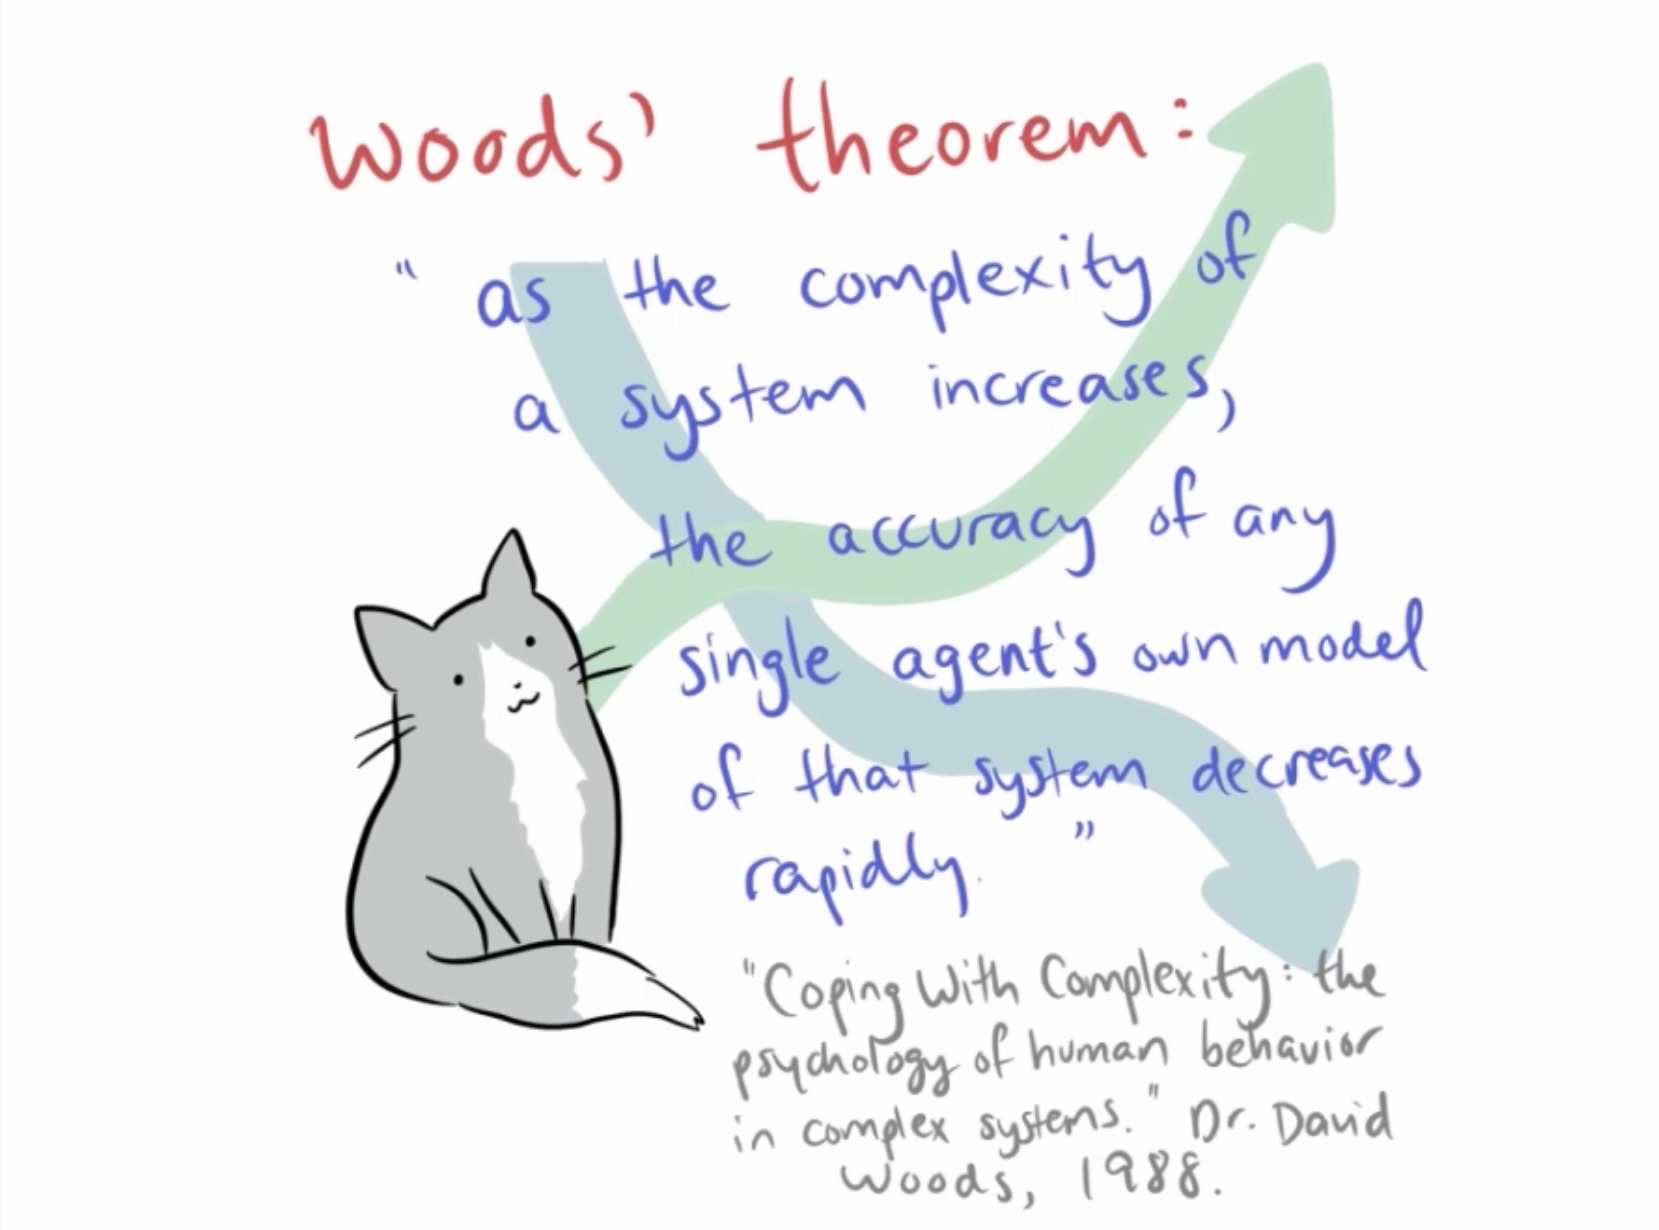 Woods' theorem:
" as the complexity of
a system increases,
the accuracy of any
single agent's own model
of that system decreases
rapidly. "
"Coping With Complexity: the
psychology of human behavior
in complex systems." Dr. David
Woods, 1988.